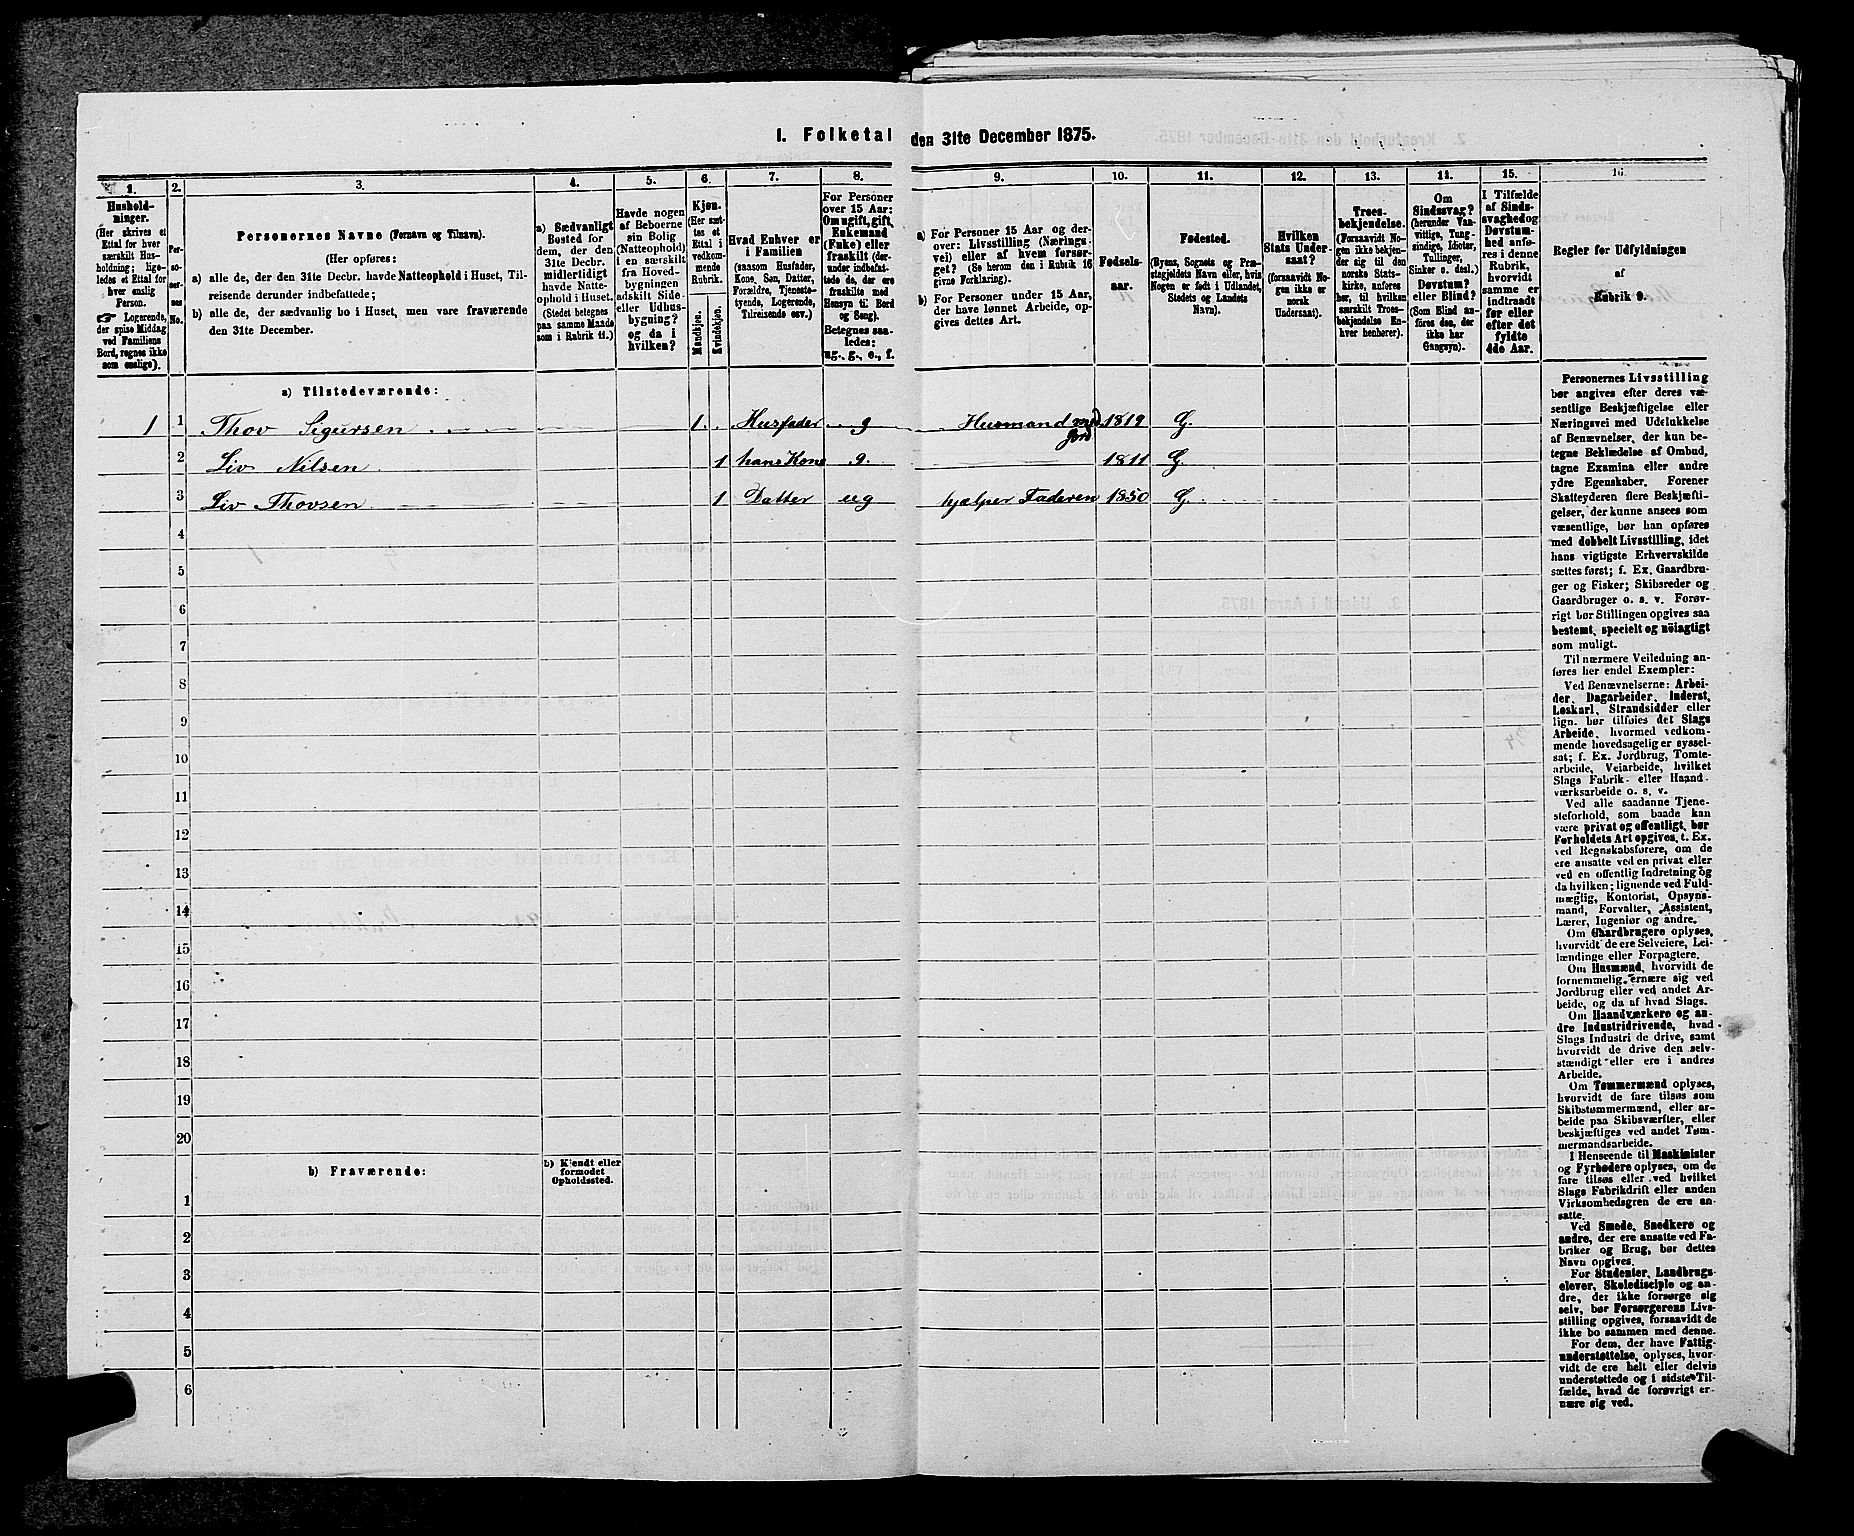 1. Folketal den 31te December 1875.
1. 2. 3. 4. 5. 6. 7. 8. 9. 10. 11. 12. 13. 14. 15. 16.
Hushold-
ninger.
(Her skrives et
Ettal for hver
særskilt Hus-
holdning; lige-
ledes et Ettal for
hver enslig
Person.
☞ Logerende,
der spise Middag
ved Familiens
Bord, regnes ikke
som enslige).
Per-
so-
ner-
nes
No.
Personernes Navne (Fornavn og Tilnavn).
(Her opføres:
a) alle de, der den 31te Decbr. havde Natteophold i Huset, Til-
reisende derunder indbefattede;
b) alle de, der sædvanlig bo i Huset, men vare fraværende
den 31te December.
a) Sædvanligt
Bosted for
dem, der den
31te Decbr.
midlertidigt
havde Natte-
ophold i Huset.
(Stedet betegnes
paa samme Maade
som i Rubrik 11.)
Havde nogen
af Beboerne
sin Bolig
(Natteophold)
i en særskilt
fra Hoved-
bygningen
adskilt Side-
eller Udhus-
bygning?
og da i
hvilken?
Kjøn.
(Her sæt-
tes et
Ettal i
vedkom-
mende
Rubrik.
Mandkjøn.
Kvindekjøn.
Hvad Enhver er
i Familien
(saasom Husfader,
Kone, Søn, Datter,
Forældre, Tjeneste-
tyende, Logerende,
Tilreisende osv.)
For Personer
over 15 Aar:
Om ugift, gift,
Enkemand
(Enke) eller
fraskilt (der-
under indbefat-
tede de, der ere
fraskilte med
Hensyn til Bord
og Seng).
Betegnes saa-
ledes:
ug., g., e., f.
a) For Personer 15 Aar og der-
over: Livsstilling (Nærings-
vei) eller af hvem forsør-
get? (Se herom den i Rubrik 16
givne Forklaring).
b) For Personer under 15 Aar,
der have lønnet Arbeide, op-
gives dettes Art.
Fødsels-
aar.
Fødested.
(Byens, Sognets og Præ-
stegjeldets Navn eller, hvis
Nogen er født i Udlandet,
Stedets og Landets
Navn).
Hvilken
Stats Under-
saat?
(forsaavidt No-
gen ikke er
norsk
Undersaat).
Troes-
bekjendelse.
(Forsaavidt No-
gen ikke bekjen-
der sig til den
norske Stats-
kirke, anføres
her, til hvilken
særskilt Troes-
bekjendelse En-
hver henhører).
Om
Sindssvag?
(herunder Van-
vittige, Tung-
sindige, Idioter,
Tullinger,
Sinker o. desl.)
Døvstum?
eller Blind?
(Som Blind an-
føres den, der
ikke har
Gangsyn).
I Tilfælde
af Sinds-
svaghed og
Døvstum-
hed anfø-
res i denne
Rubrik,
hvorvidt
samme er
indtraadt
før eller
efter det
fyldte
4de Aar.
Regler for Udfyldningen
af
Rubrik 9.
a) Tilstedeværende:
1 1 Thov Sigursen 1. Husfader g Husmand med Jord 1819 G.
2 Liv Nilsen 1 hans Kone g. 1811 G.
3 Liv Thovsen 1 Datter ug hjælper Faderen 1850 G.
4
5
6
7
8
9
10
11
12
13
14
15
16
17
18
19
20
b) Fraværende:
b) Kjendt eller
formodet
Opholdssted.
1
2
3
4
5
6
Personernes Livsstilling
bør angives efter deres væ-
sentlige Beskjæftigelse eller
Næringsvei med Udelukkelse
af Benævnelser, der kun be-
tegne Beklædelse af Ombud,
tagne Examina eller andre
ydre Egenskaber. Forener
Skatteyderen flere Beskjæfti-
gelser, der kunne ansees som
væsentlige, bør han opføres
med dobbelt Livsstilling, idet
hans vigtigste Erhvervskilde
sættes først; f. Ex. Gaardbru-
ger og Fisker; Skibsreder og
Gaardbruger o. s. v. Forøv-
rigt bør Stillingen opgives saa
bestemt, specielt og nöiagtigt
som muligt.
Til nærmere Veiledning an-
føres her endel Exempler:
Ved Benævnelserne: Arbei-
der, Dagarbeider, Inderst,
Løskarl, Strandsidder eller
lign. bør tilføies det Slags
Arbeide, hvormed vedkom-
mende hovedsagelig er syssel-
sat; f. Ex. Jordbrug, Tomte-
arbeide, Veiarbeide, hvilket
Slags Fabrik- eller Haand-
værksarbeide o. s. v.
Ved alle saadanne Tjene-
steforhold, som baade kan
være privat og offentligt, bør
Forholdets Art opgives, t. Ex.
ved Regnskabsførere, om de
ere ansatte ved en privat eller
ved en offentlig Indretning og
da hvilken; lignende ved Fuld-
mægtig, Kontorist, Opsyns-
mand, Forvalter, Assistent,
Lærer, Ingeniør og andre.
Om Gaardbrugere oplyses,
hvorvidt de ere Selveiere, Lei-
lændinge eller Forpagtere.
Om Husmænd, hvorvidt de
fornemmelig ernære sig ved
Jordbrug eller ved andet Ar-
beide, og da af hvad Slags.
Om Haandværkere og an-
dre Industridrivende, hvad
Slags Industri de drive, samt
hvorvidt de drive den selv-
stændigt eller ere i andres
Arbeide.
Om Tømmermænd oplyses,
hvorvidt de fare tilsøs som
Skibstømmermænd, eller ar-
beide paa Skibsværfter, eller
beskjæftiges ved andet Tøm-
mermandsarbeide.
I Henseende til Maskinister
og Fyrbødere oplyses, om de
fare tilsøs eller ved hvilket
Slags Fabrikdrift eller anden
Virksomhedsgren de ere an-
satte.
Ved Smede, Snedkere og
andre, der ere ansatte ved Fa-
briker og Brug, bør dettes
Navn opgives.
For Studenter, Landbrugs-
elever, Skoledisciple og an-
dre, der ikke forsørge sig
selv, bør Forsørgerens Livs-
stilling opgives, forsaavidt de
ikke bo sammen med denne.
For dem, der have Fattig-
understøttelse, oplyses, hvor-
vidt de ere helt eller delvis
understøttede og i sidste Til-
fælde, hvad de forøvrigt er-
nære sig ved.